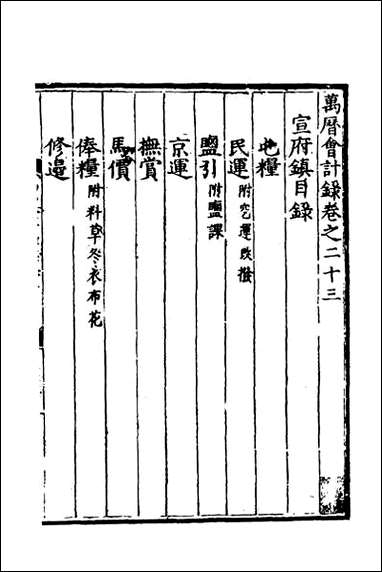 萬曆會計錄卷之二十三
宣府鎮目錄
屯糧
民運附兌運改撥
鹽引附鹽課
京運
撫賞
馬價
俸糧附料草冬衣布花
修邊